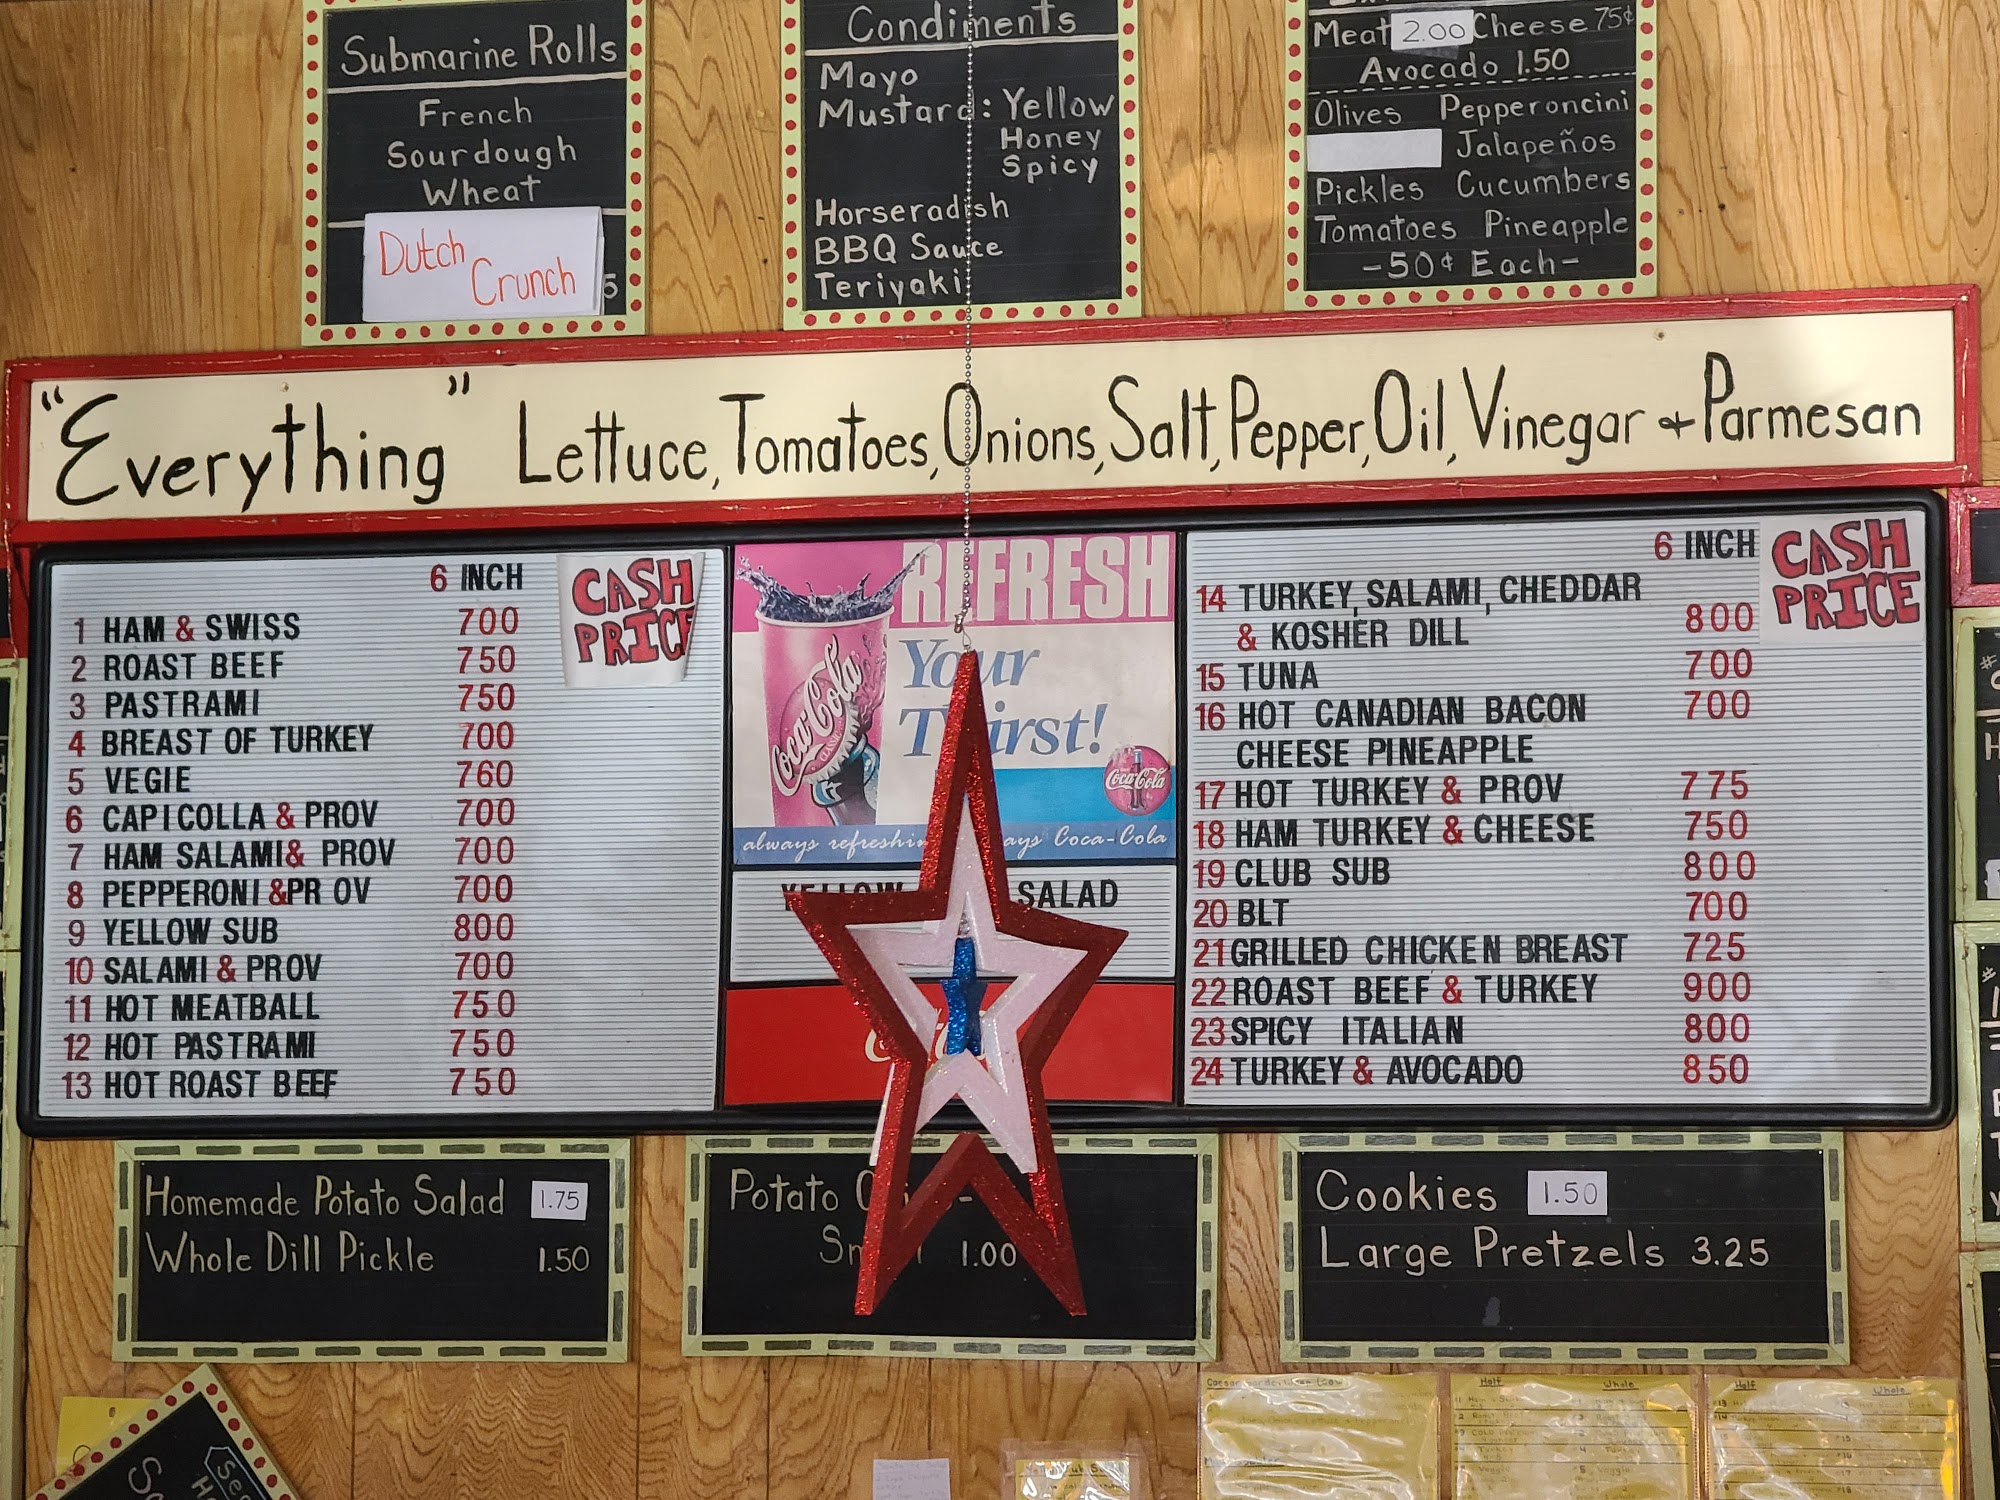 Submarine Rolls
French
Sourdough
Wheat
Dutch
Crunch
5
Condiments
Mayo
Mustard: Yellow
Honey
Spicy
Horseradish
BBQ Sauce
Teriyaki
Meat 2.00 Cheese 75¢
Avocado 1.50
Olives Pepperoncini
Jalapeños
Pickles Cucumbers
Tomatoes Pineapple
-50¢ Each-
"Everything" Lettuce, Tomatoes, Onions, Salt, Pepper, Oil, Vinegar + Parmesan
6 INCH
CASH
PRICE
1 HAM & SWISS 700
2 ROAST BEEF 750
3 PASTRAMI 750
4 BREAST OF TURKEY 700
5 VEGIE 760
6 CAPICOLLA & PROV 700
7 HAM SALAMI& PROV 700
8 PEPPERONI &PR OV 700
9 YELLOW SUB 800
10 SALAMI & PROV 700
11 HOT MEATBALL 750
12 HOT PASTRAMI 750
13 HOT ROAST BEEF 750
REFRESH
Your
Thirst!
Coca-Cola
CLASSIC
Coca-Cola
always refreshin ays Coca-Cola
YELLOW SALAD
6 INCH
CASH
PRICE
14 TURKEY, SALAMI, CHEDDAR
& KOSHER DILL 800
15 TUNA 700
16 HOT CANADIAN BACON 700
CHEESE PINEAPPLE
17 HOT TURKEY & PROV 775
18 HAM TURKEY & CHEESE 750
19 CLUB SUB 800
20 BLT 700
21 GRILLED CHICKEN BREAST 725
22 ROAST BEEF & TURKEY 900
23 SPICY ITALIAN 800
24 TURKEY & AVOCADO 850
Homemade Potato Salad 1.75
Whole Dill Pickle 1.50
Potato
1.00
Cookies 1.50
Large Pretzels 3.25
Half Whole
Half Whole